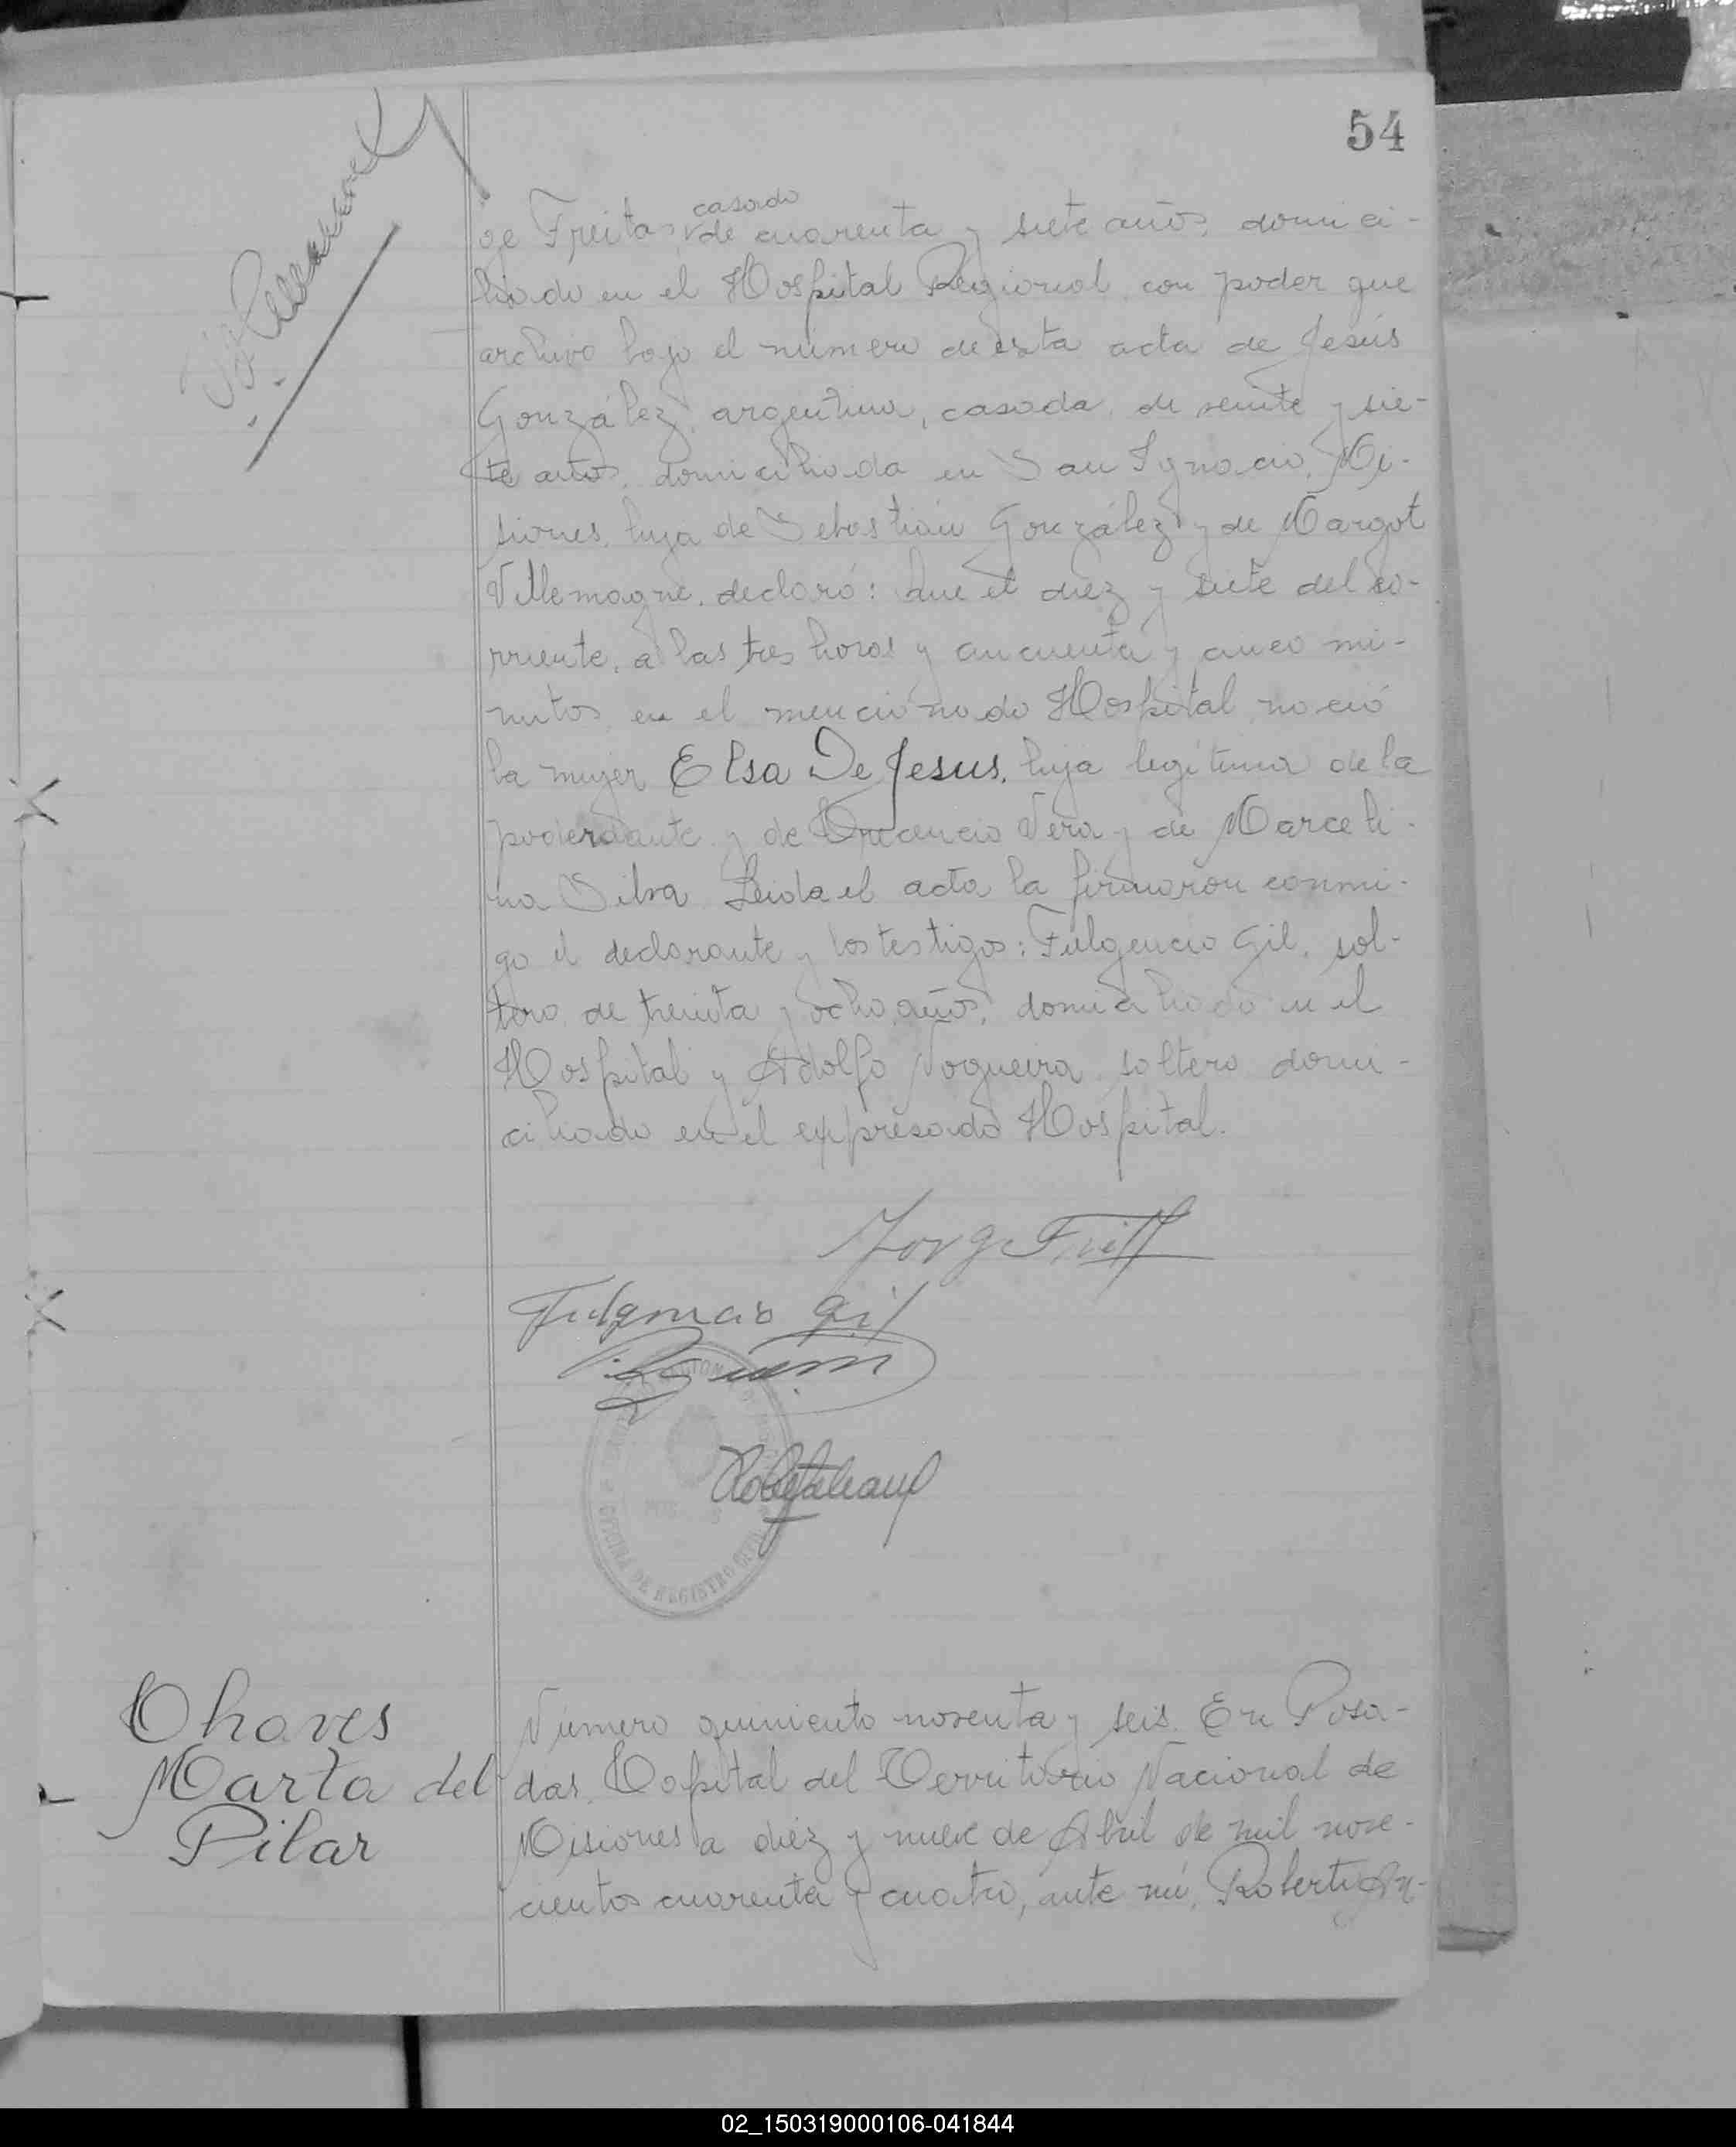 54
casado
ge Freitas, de cuarenta y siete años, domici-
liado en el Hospital Regional con poder que
archivo bajo el número de esta acta de Jesús
González, argentina, casada, de veinte y sie-
te años, domiciliada en San Ignacio, Mi-
siones, hija de Sebastián González y de Margot
Villemagne, declaró: Que el diez y siete del co-
rriente, a las tres horas y cincuenta y cinco mi-
nutos, en el mencionado Hospital nació
la mujer Elsa De Jesus, hija legítima de la
poderdante y de Crecencio Vera y de Marceli-
na Silva. Leida el acta la firmaron conmi-
go el declarante y los testigos: Fulgencio Gil, sol-
tero, de treinta y ocho años, domiciliado en el
Hospital y Adolfo Nogueira, soltero, domi-
ciliado en el expresado Hospital.
Fulgencio Gil
OFICINA DE REGISTRO CIVIL
Chaves
Marta del
Pilar
Número quiniento noventa y seis. En Posa-
das, Capital del Territorio Nacional de
Misiones a diez y nueve de Abril de mil nove-
cientos cuarenta y cuatro, ante mí, Roberto
02_150319000106-041844